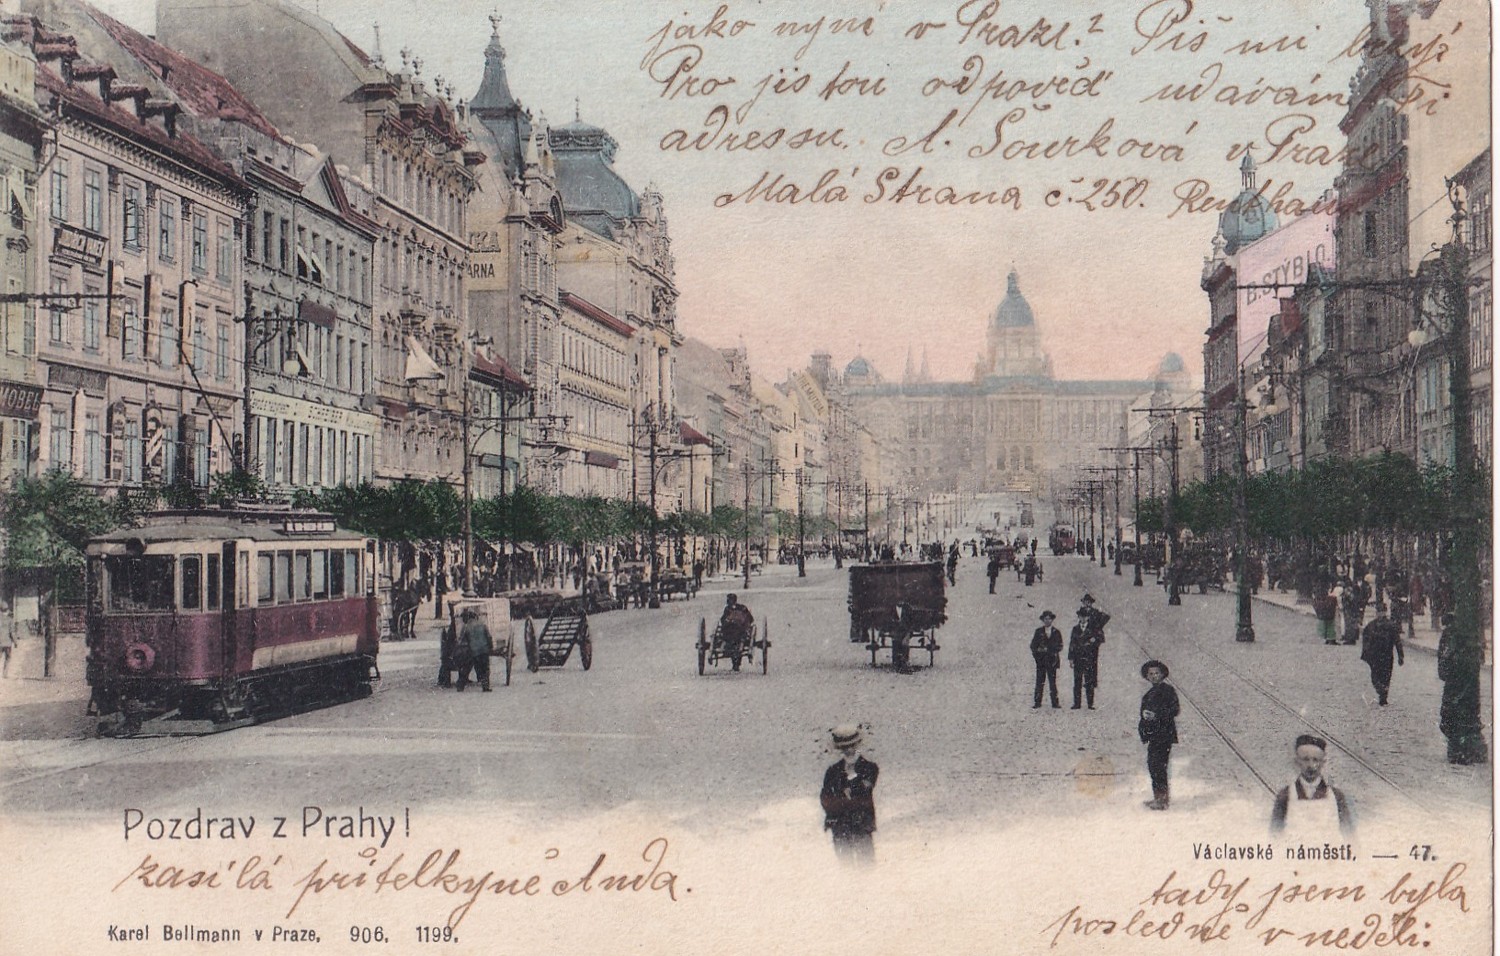 jako nyní v Praze? Piš mi brzy?
Pro jistou odpověď udávám Ti
adressu. A. Šourková v Praze
Malá Strana č. 250.
KA
ARNA
B. STÝBLO
Pozdrav z Prahy!
zasílá přítelkyně Anda.
Karel Bellmann v Praze. 906. 1199.
Václavské náměstí. — 47.
tady jsem byla
posledně v neděli.